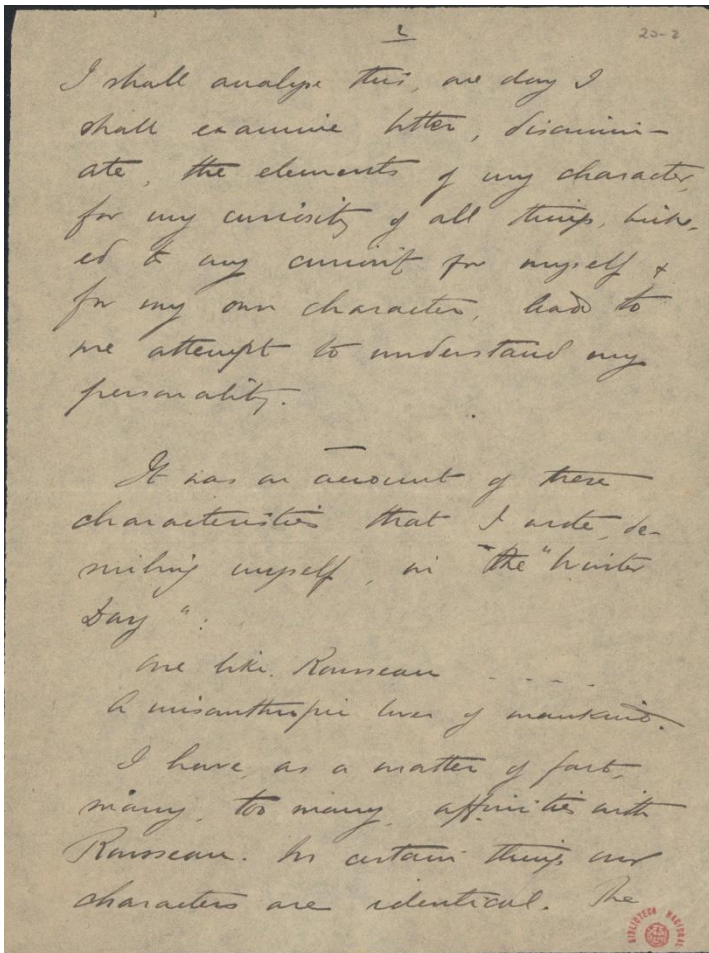 2
20-2
I shall analyse this, one day I
shall examine better, discrimin-
ate, the elements of my character,
for my curiosity of all things, link-
ed to my curiosity for myself &
for my own character, leads to
me attempt to understand my
personality.
It was on account of these
characteristics that I wrote, de-
scribing myself, in "The "Winter
Day":
One like Rousseau - - - -
A misanthropic lover of mankind.
I have, as a matter of fact,
many, too many, affinities with
Rousseau. In certain things our
characters are identical. The
BIBLIOTECA NACIONAL